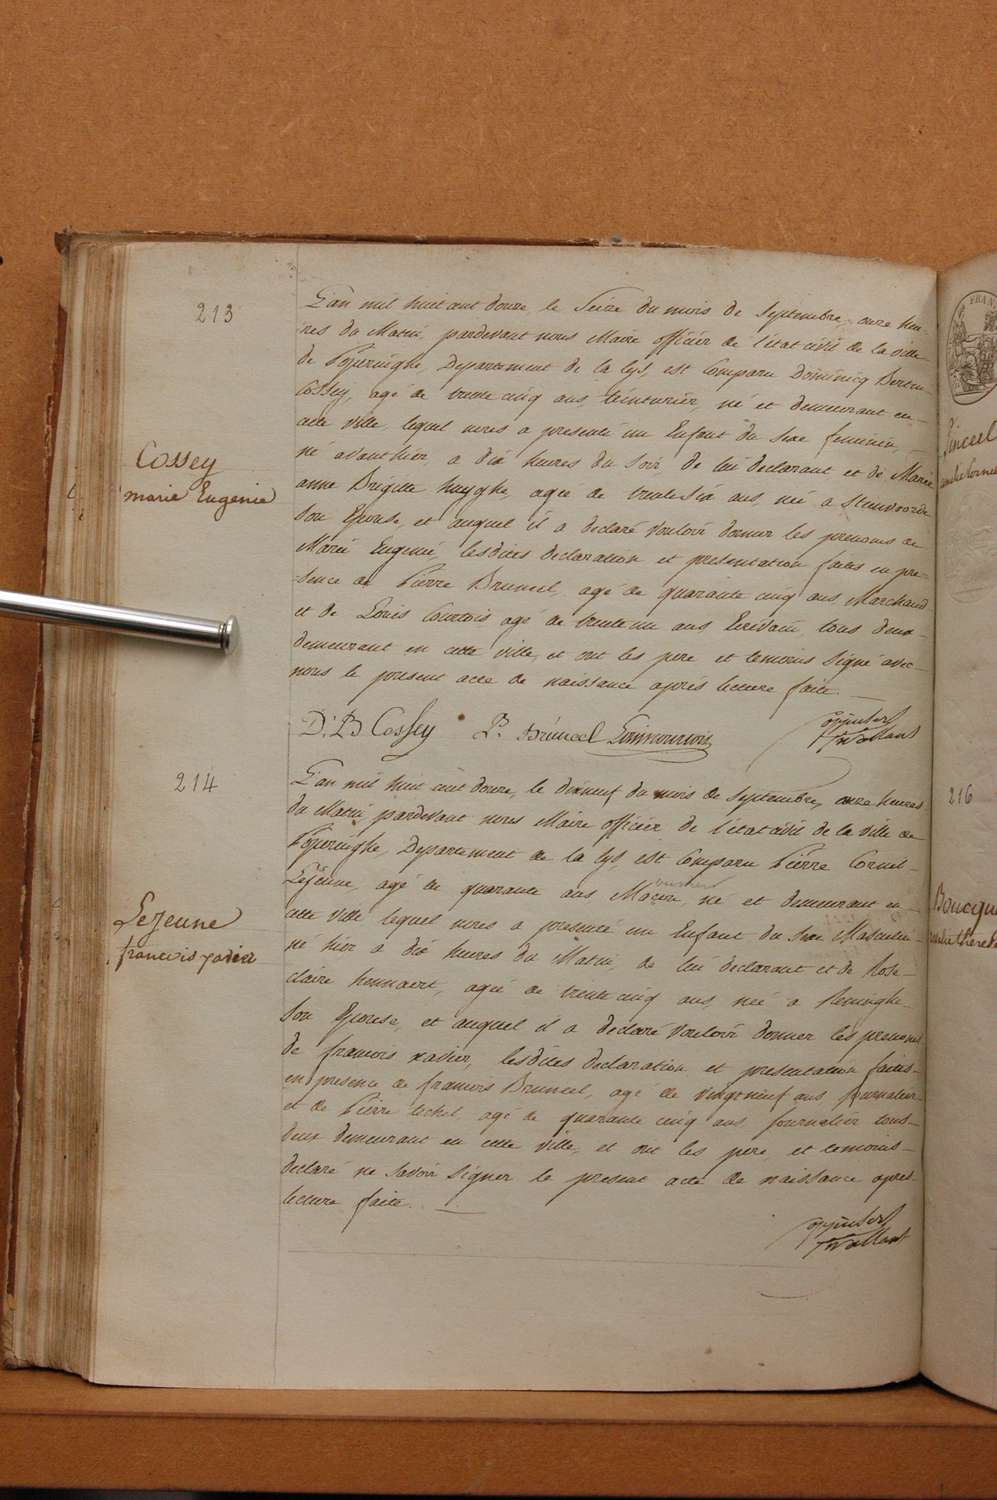 213
Cossey
marie Eugenie
L'an mil huit cent douze, le Seize du mois de Septembre, onze heu-
res du Matin, pardevant nous Maire officier de l'état civil de la ville
de Poperinghe, Departement de la lys, est Comparu Dominicq
Cossey, agé de trente cinq ans, teinturier, né et demeurant en
cette ville, lequel nous a presenté un Enfant du Sexe feminin,
né avanthier, a dix heures du Soir, de lui declarant et de Marie
anne Brigitte huyghe, agée de trentesix ans, née a Steenvoorde
Son Epouse, et auquel il a declaré vouloir donner les prenoms de
Marie Eugenie, lesdites declaration et presentation faites en pre-
sence de Pierre Bruneel, agé de quarante cinq ans, Marchand
et de Louis Courtois agé de trente un ans Ecrivain, tous deux
demeurant en cette ville, et ont les pere et temoins Signé avec
nous le present acte de naissance après lecture faite.
D. B Cossey P. Bruneel Louis Courtois
214
Lejeune
francois xavier
L'an mil huit cent douze, le dixneuf du mois de Septembre, onze heures
du Matin, pardevant nous Maire officier de l'état civil de la ville de
Poperinghe, Departement de la lys, est Comparu Pierre Cornel-
Lejeune, agé de quarante ans Maçon, né et demeurant en
cette ville lequel nous a presenté un Enfant du Sexe Masculin
né hier à dix heures du Matin, de lui declarant et de Rose
claire hennaert, agée de trente cinq ans, née a Reninghe
Son Epouse, et auquel il a declaré vouloir donner les prenoms
de francois xavier, lesdites declaration et presentation faites
en presence de francois Bruneel, agé de vingt neuf ans, journalier
et de Pierre agé de quarante cinq ans journalier tous
deux demeurant en cette ville, et ont les pere, et temoins
declaré ne Savoir Signer le present acte de naissance après
lecture faite.
216
Boucqu